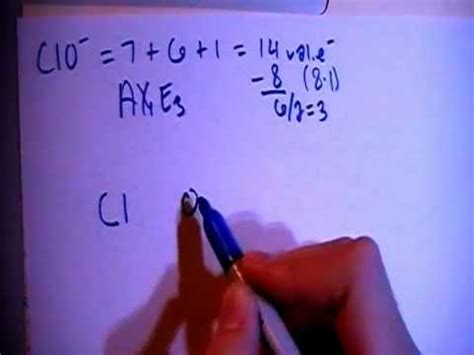 ClO⁻ = 7 + 6 + 1 = 14 val. e⁻
- 8 (8·1)
AX₁E₃
6/2 = 3
Cl O